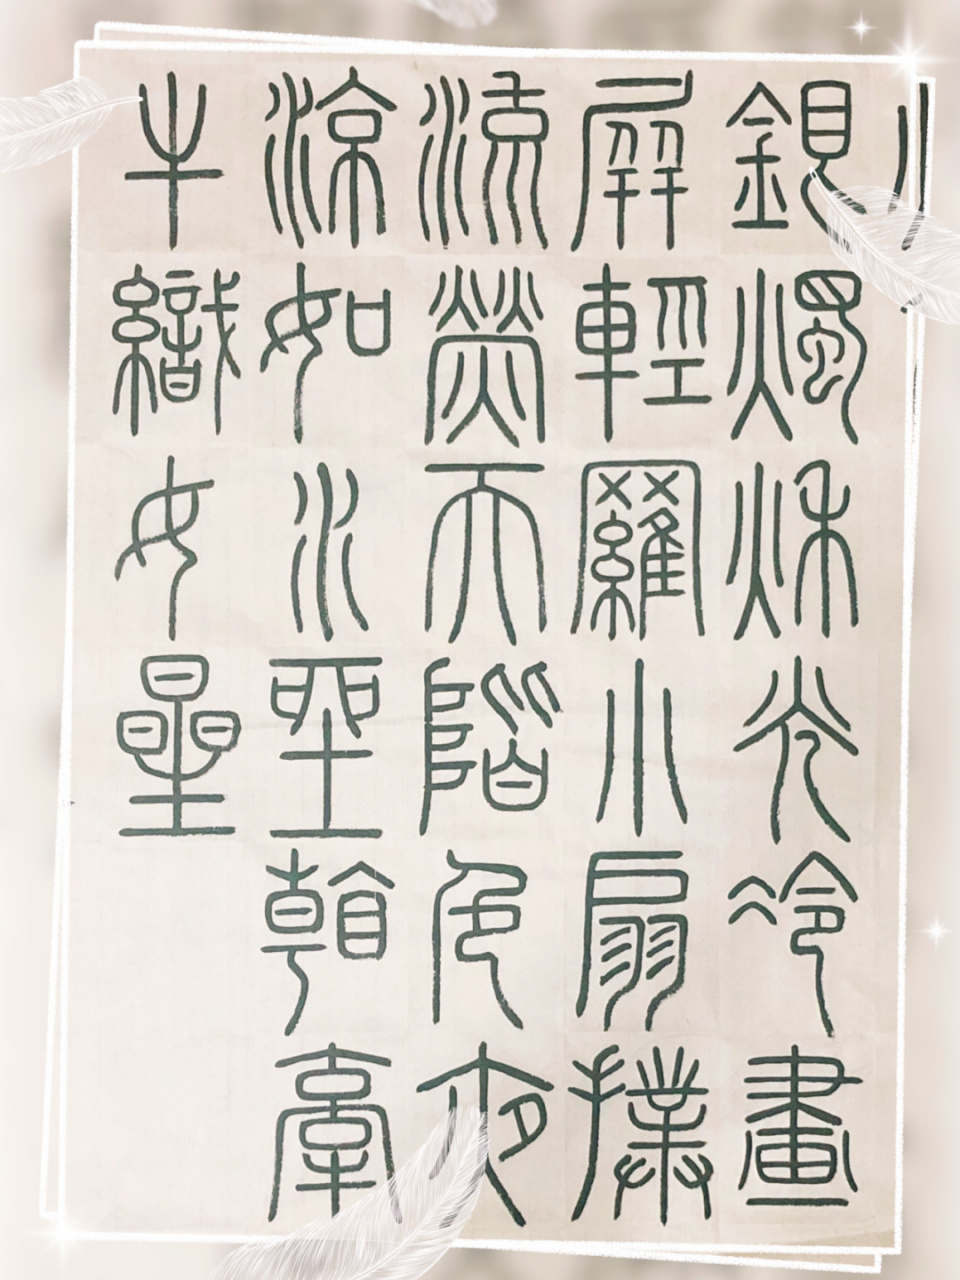 銀燭秋光冷畫
屏輕羅小扇撲
流熒天階色夜
涼如水坐看牽
牛織女星